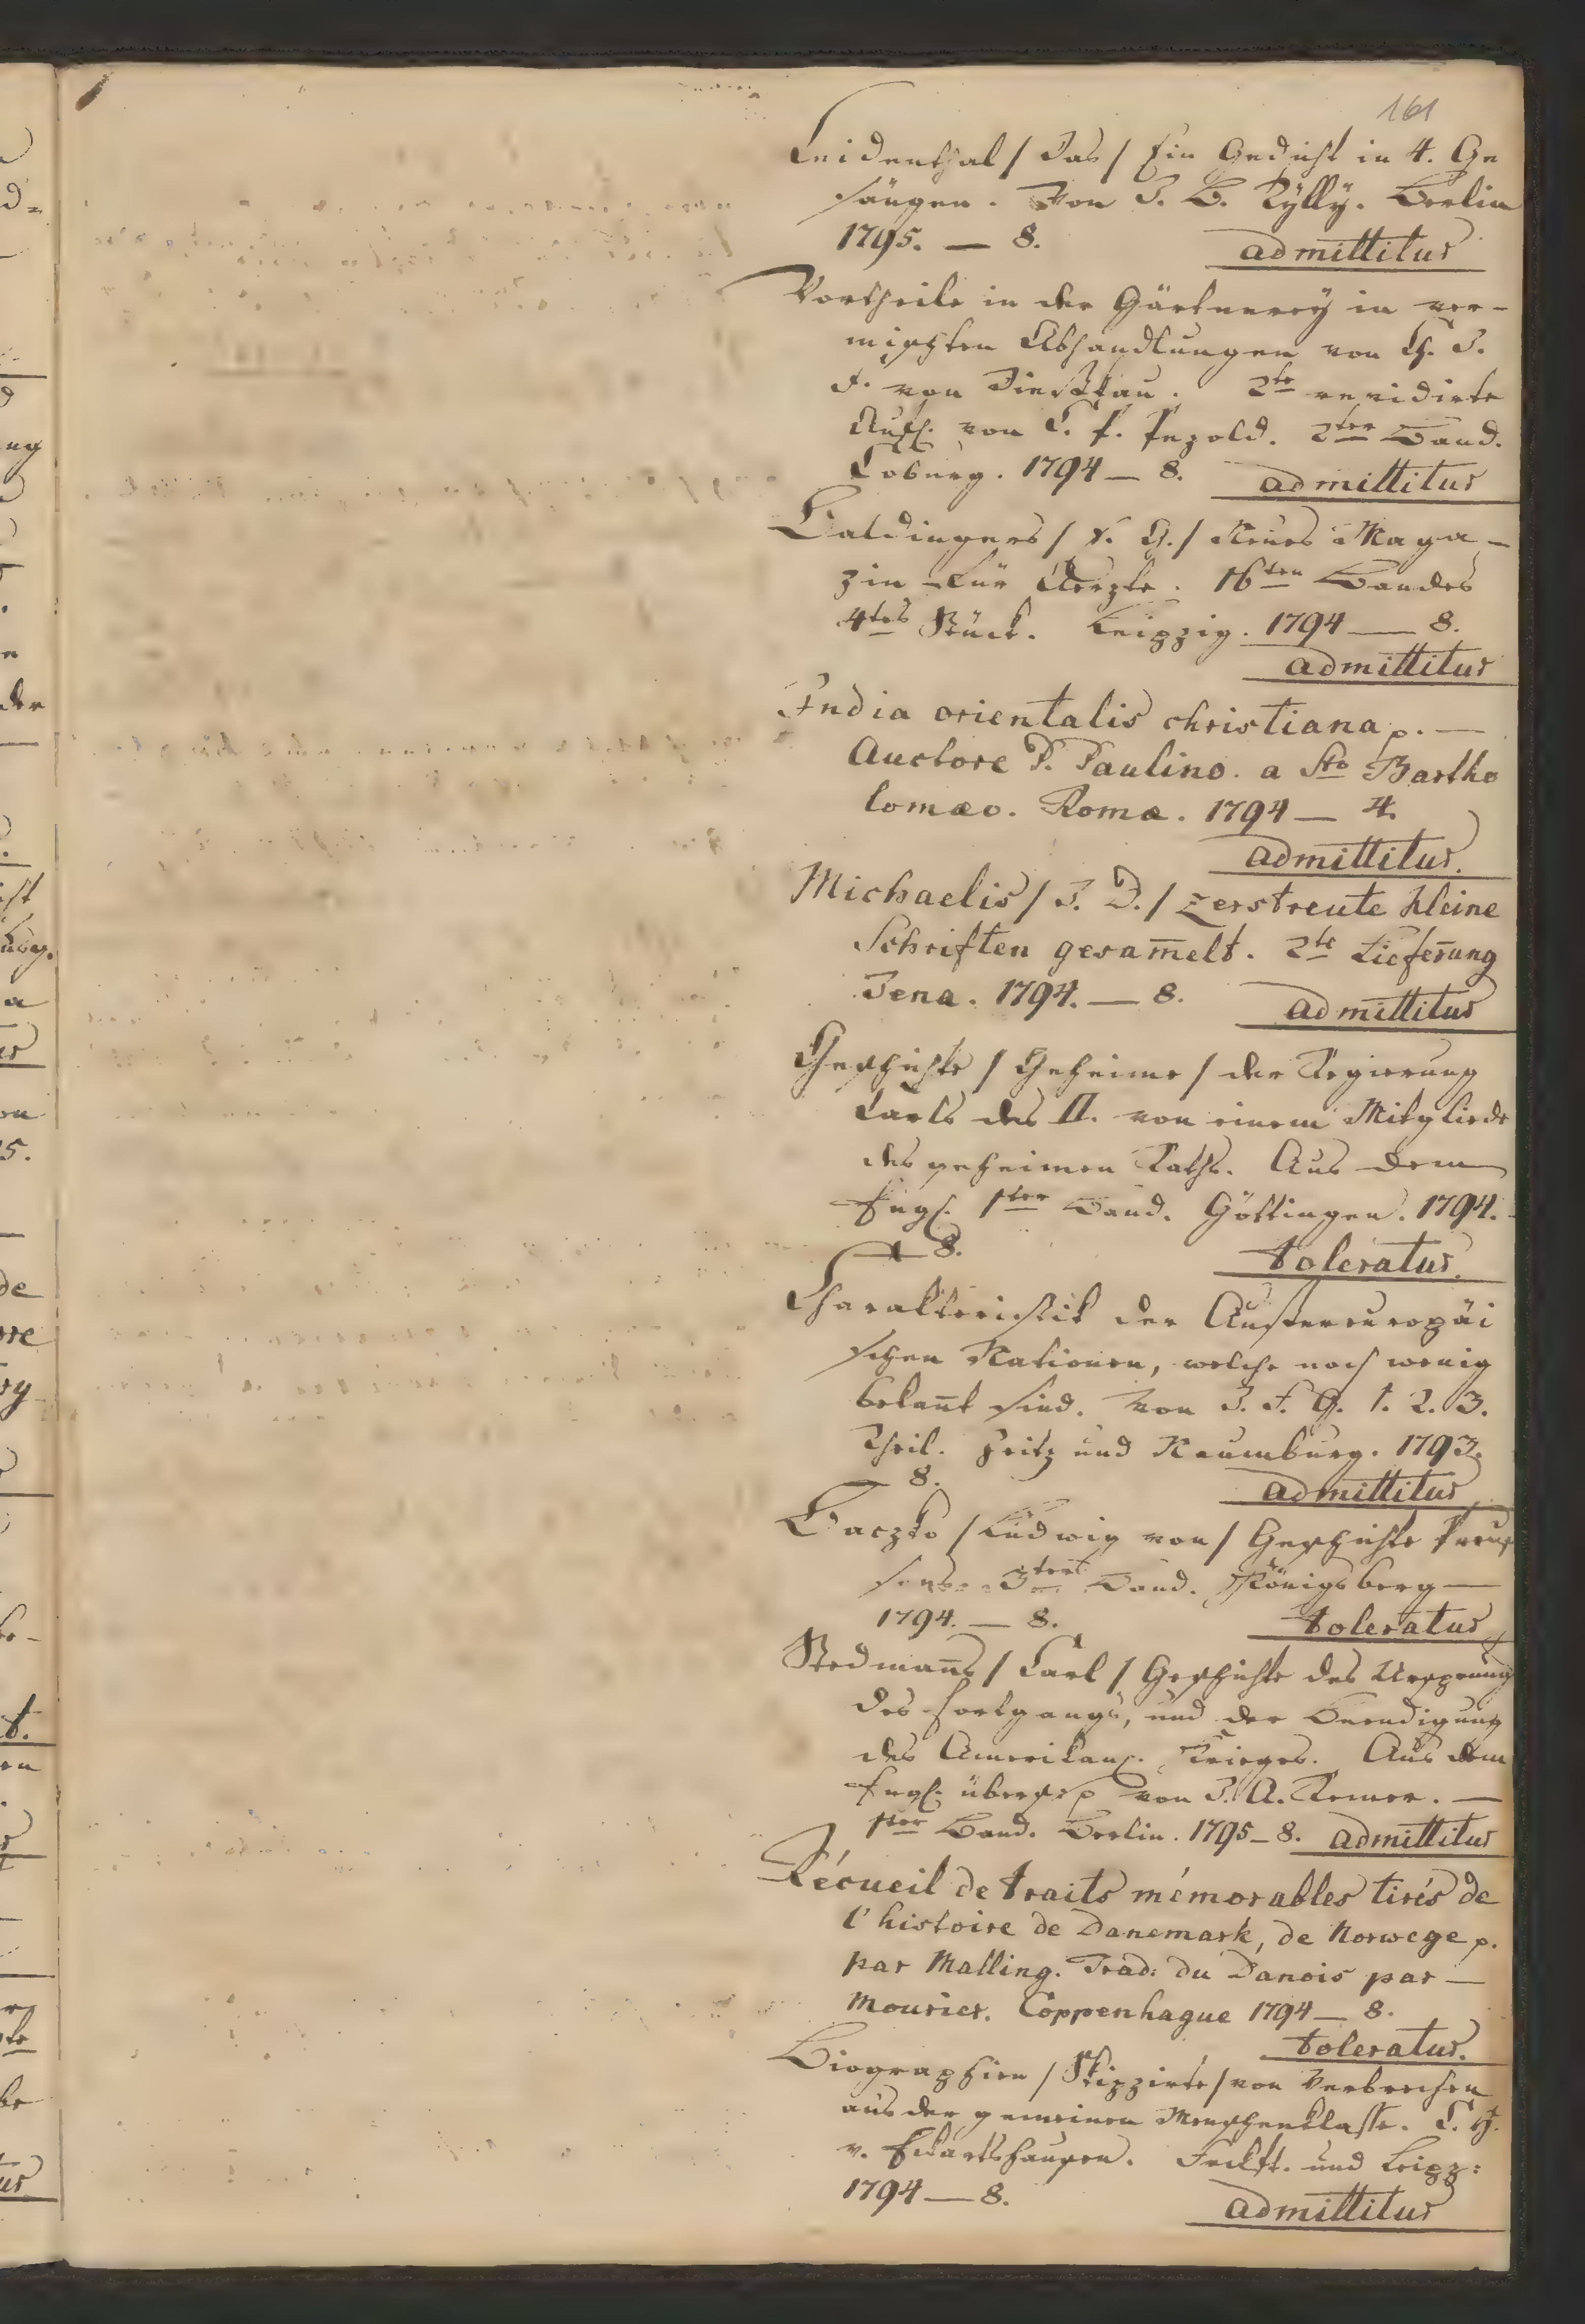 161
Leidenthal / Das / Ein Gedicht in 4. Ge
sängen. Von J. B. Rylly. Berlin
1795. — 8. admittitur
Vortheile in der Gärtnerey in ver-
mischten Abhandlungen von Ch. J.
F. von Dieskau. 2te revidirte
Aufl. von C. F. Pezold. 2ter Band.
Coburg. 1794 — 8. admittitur
Baldingers / E. G. / Neues Maga-
zin für Aerzte. 16ten Bandes
4tes Stück. Leipzig. 1794 — 8.
admittitur
India orientalis christiana p. —
Auctore P. Paulino. a Sto Bartho
lomæo. Romæ. 1794 — 4.
admittitur.
Michaelis / J. D. / zerstreute kleine
Schriften gesam̄elt. 2te Lieferung
Jena. 1794. — 8. admittitur
Geschichte / Geheime / der Regierung
Carls des II. von einem Mitgliede
des geheimen Raths. Aus dem
Engl. 1ter Band. Göttingen. 1794.
— 8. toleratur.
Charakteristik der Aussereuropäi
schen Nationen, welche noch wenig
bekan̄t sind. Von J. F. G. 1. 2. 3.
Theil. Zeitz und Naumburg. 1793.
— 8. admittitur
Baczko / Ludwig von / Geschichte Preus
sens. 3ter Band. Königsberg —
1794. — 8. toleratur
Stedman̄s / Carl / Geschichte des Ursprung
des Fortgangs, und der Beendigung
des Amerikan. Krieges. Aus dem
Engl. übers. p von J. A. Remer. —
1ter Band. Berlin. 1795 — 8. admittitur
Récueil de traits mémorables tirés de
l'histoire de Danemark, de Norwege p.
par Malling. Trad: du Danois par —
Mourier. Coppenhague 1794 — 8.
toleratur.
Biographien / Skizzirte / von Verbrechen
aus der gemeinen Menschenklasse. C. H.
v. Eckartshausen. Frckft. und Leipz:
1794 — 8. admittitur